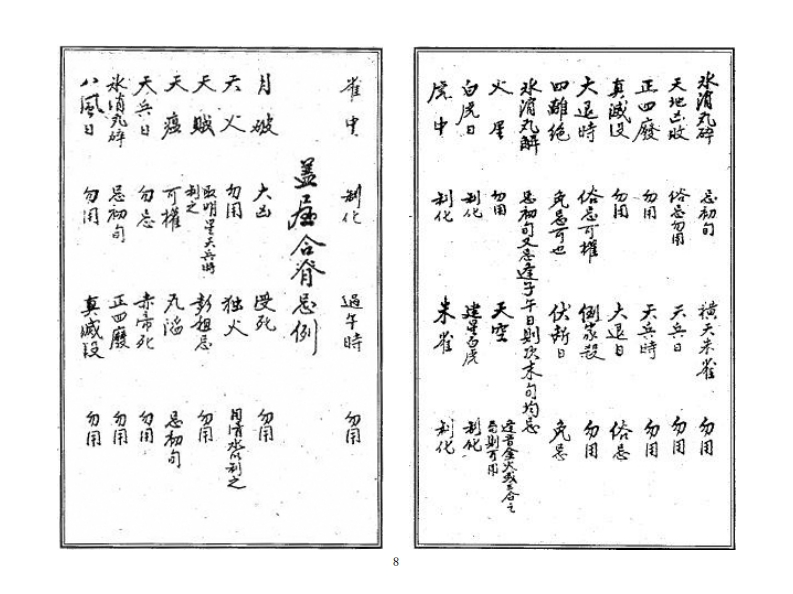 冰消瓦碎 忌初旬 橫天朱雀 勿用
天地凶敗 俗忌勿用 天兵日 勿用
正四廢 勿用 天兵時 勿用
真滅没 勿用 大退日 俗忌
大退時 俗忌可權 倒家殺 勿用
四離絕 免忌可也 伏斷日 免忌
冰消瓦解 忌初旬又忌逢子午日則項末旬均忌
火星 勿用 天空 逢音金火或三合之局則可用
白虎日 制化 建星白虎 制化
虎中 制化 朱雀 制化
雀中 制化 過午時 勿用
蓋屋合脊忌例
月破 大凶 受死 勿用
天火 勿用 獨火 用清水以制之
天賊 取明星天兵時制之 彭祖忌 勿用
天瘟 可權 瓦陷 忌初旬
天兵日 勿忌 赤帝死 勿用
冰消瓦碎 忌初旬 正四廢 勿用
八風日 勿用 真滅没 勿用
8